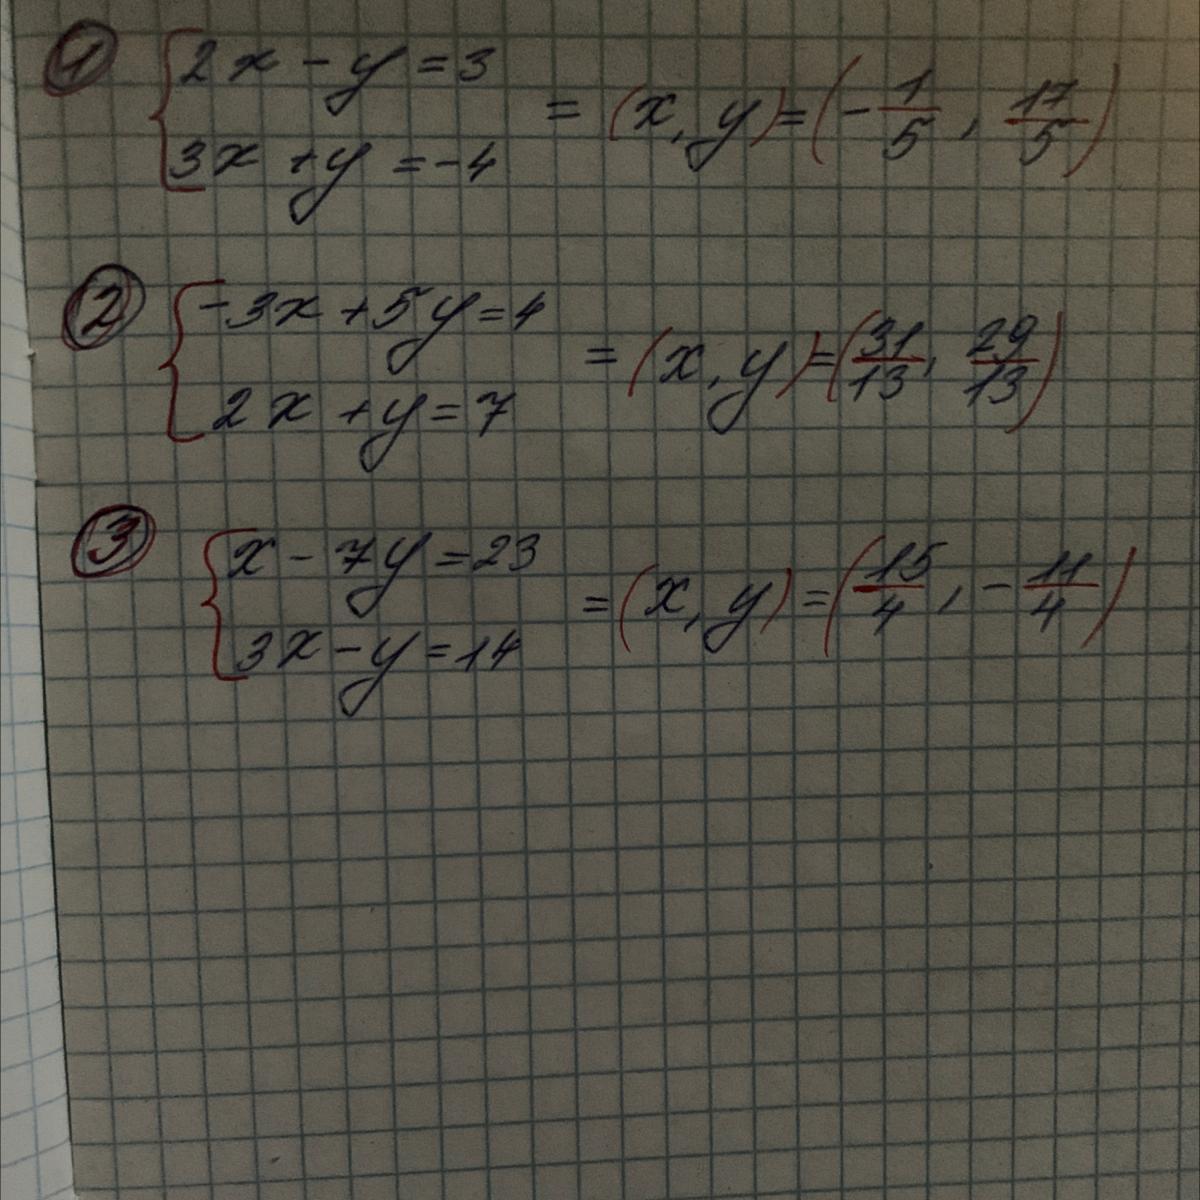 1 { 2x - y = 3
3x + y = -4
= (x, y) = (-1/5, 17/5)
2 { -3x + 5y = 4
2x + y = 7
= (x, y) = (31/13, 29/13)
3 { x - 7y = 23
3x - y = 14
= (x, y) = (15/4, -11/4)